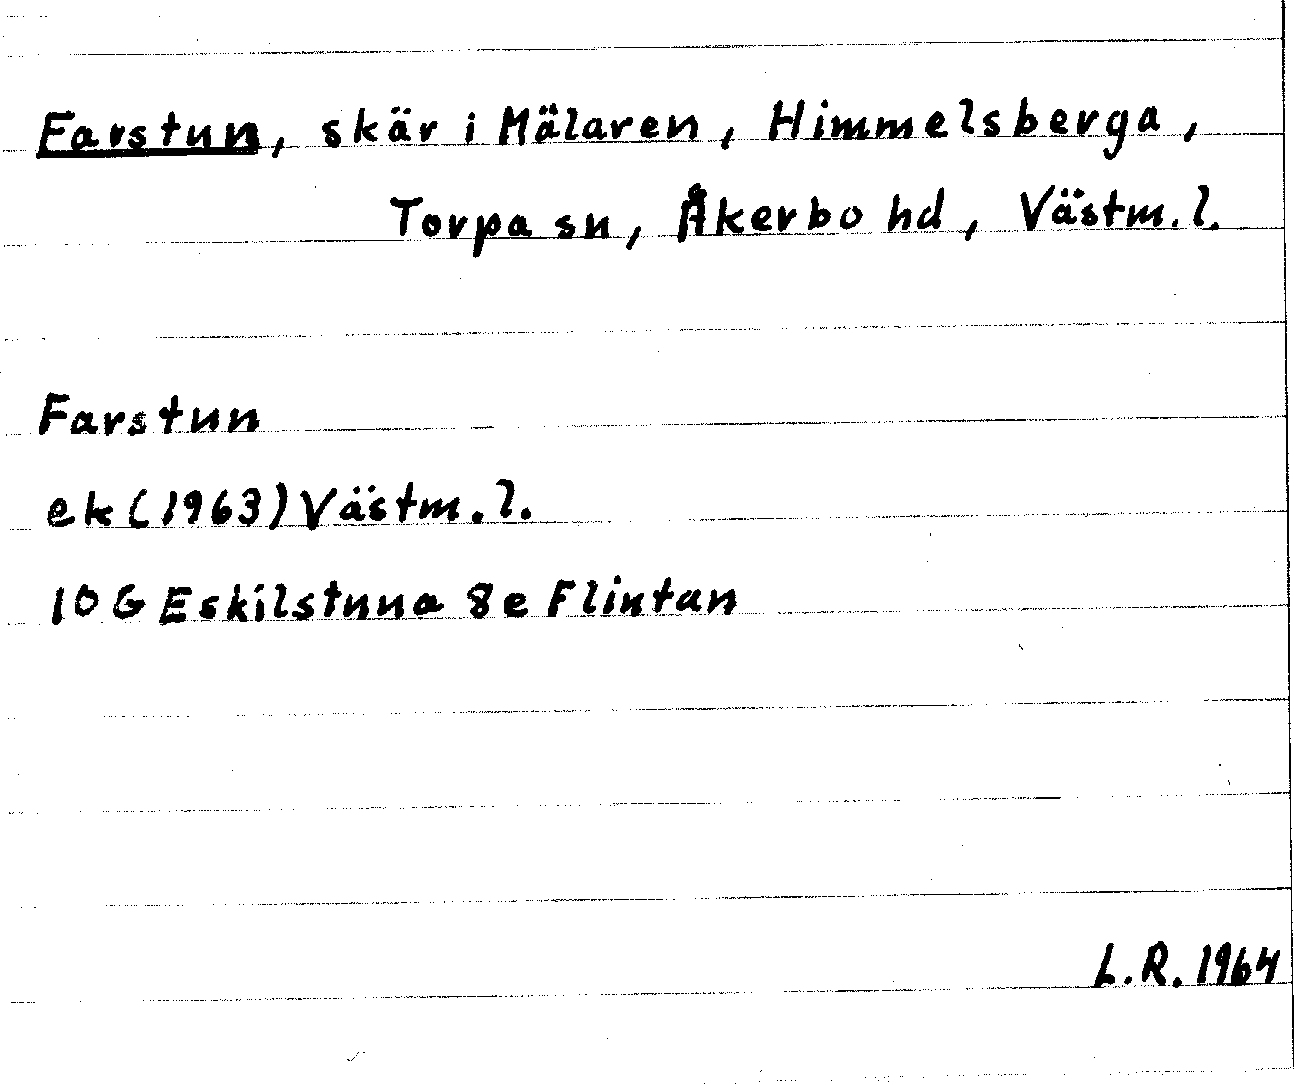 Farstun, skär i Mälaren, Himmelsberga,
Torpa sn, Åkerbo hd, Västm.l.
Farstun
ek (1963) Västm.l.
10 G Eskilstuna 8e Flintan
L.R. 1964